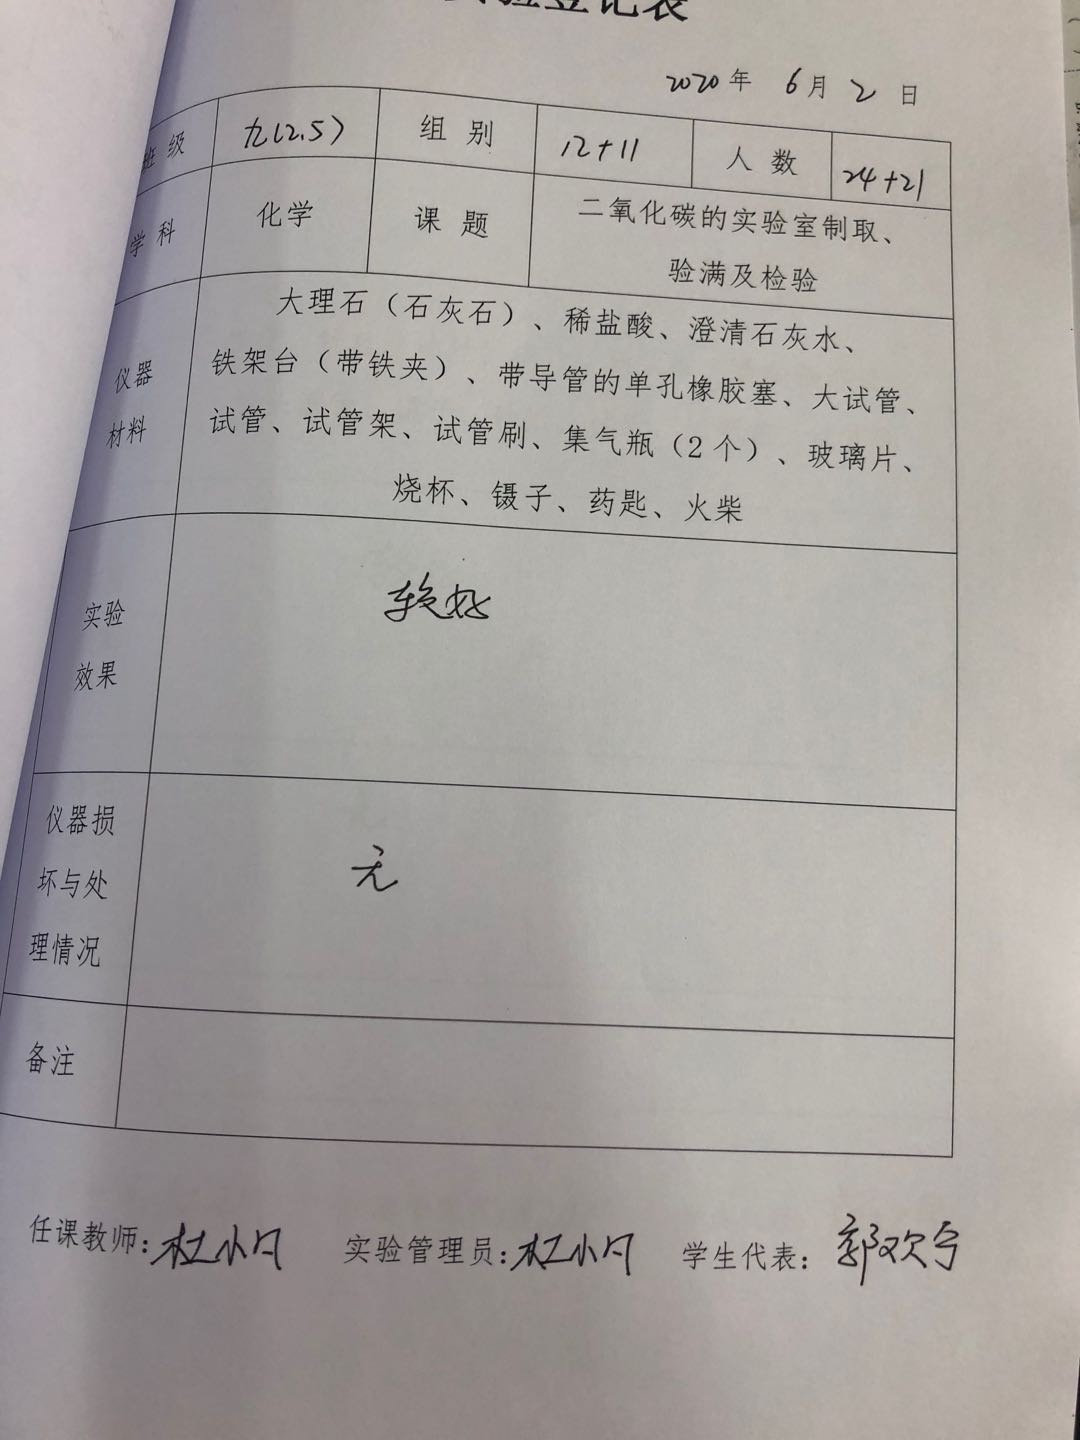 实验登记表
2020年 6月2日
班级 九(2.5) 组别 12+11 人数 24+21
学科 化学 课题 二氧化碳的实验室制取、
验满及检验
大理石（石灰石）、稀盐酸、澄清石灰水、
仪器 铁架台（带铁夹）、带导管的单孔橡胶塞、大试管、
材料 试管、试管架、试管刷、集气瓶（2个）、玻璃片、
烧杯、镊子、药匙、火柴
实验 较好
效果
仪器损
坏与处 无
理情况
备注
任课教师：杜小凡 实验管理员：杜小凡 学生代表：郭欢兮